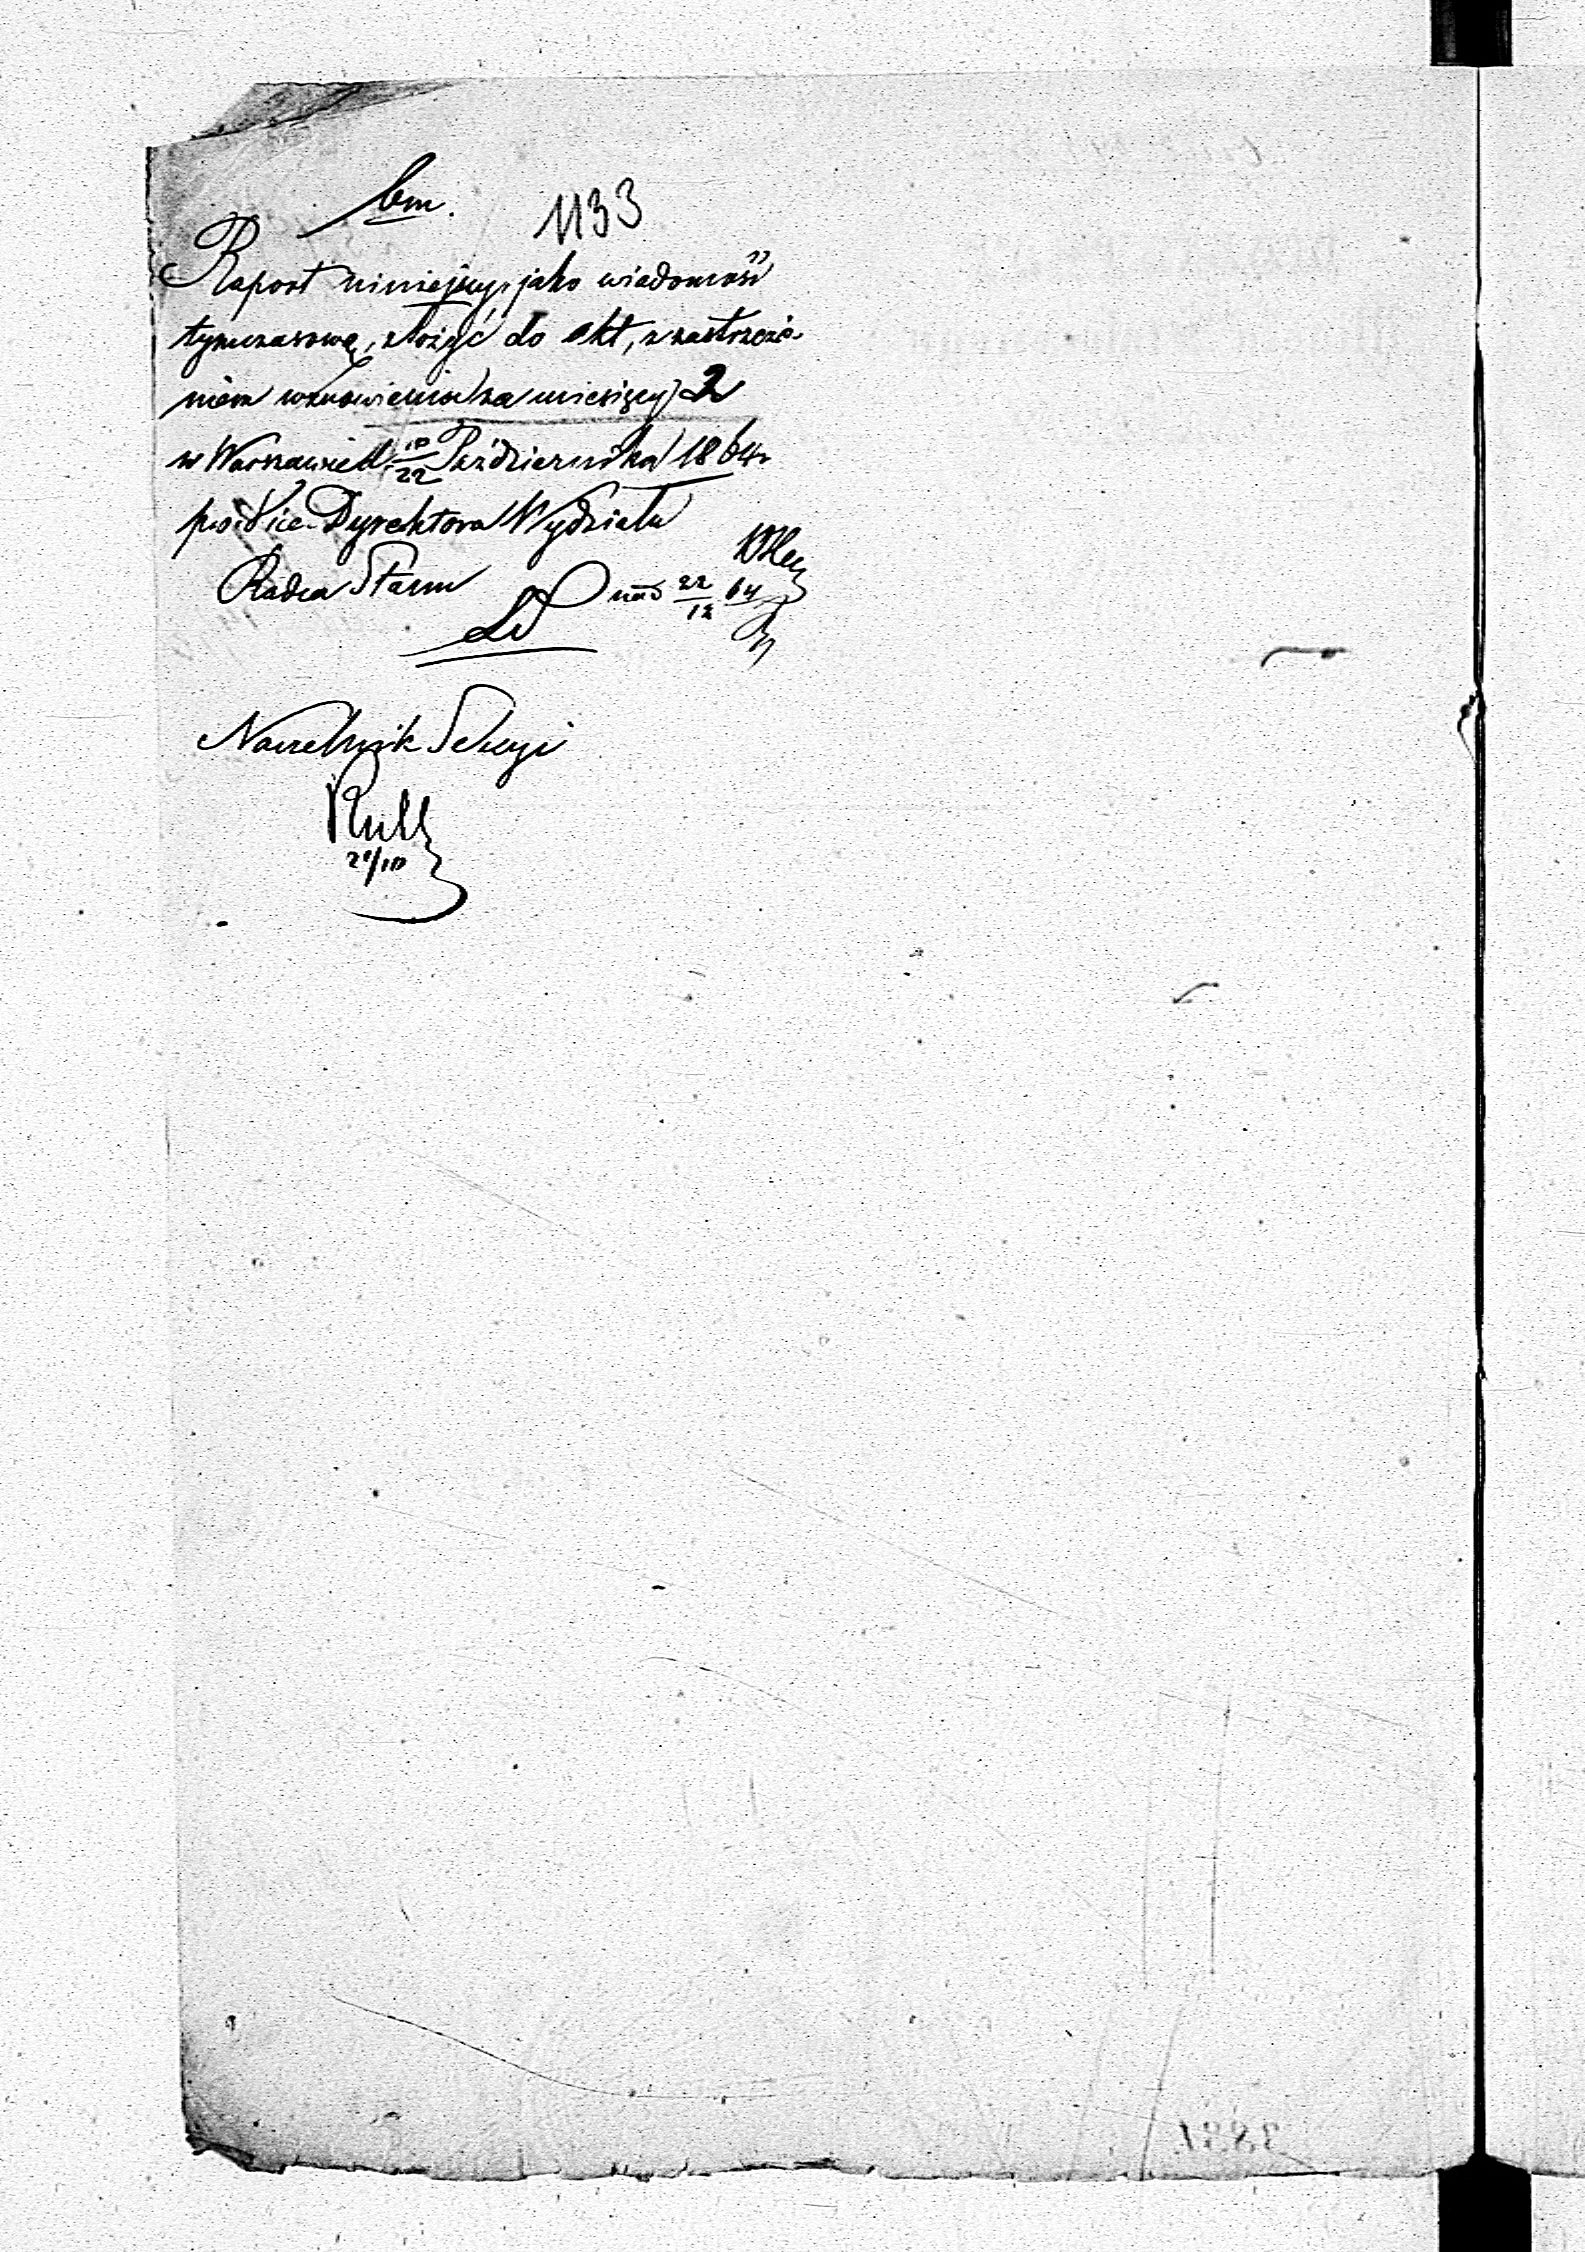 1133
Raport niniejszy, jako wiadomość
tymczasową, złożyć do Akt, z zastrzeże-
niem wznowienia za miesięcy 2
w Warszawie d. 10/22 Października 1864 r.
p. o. Vice-Dyrektora Wydziału
Radca Stanu
22/12 64
Naczelnik Sekcyi
21/10